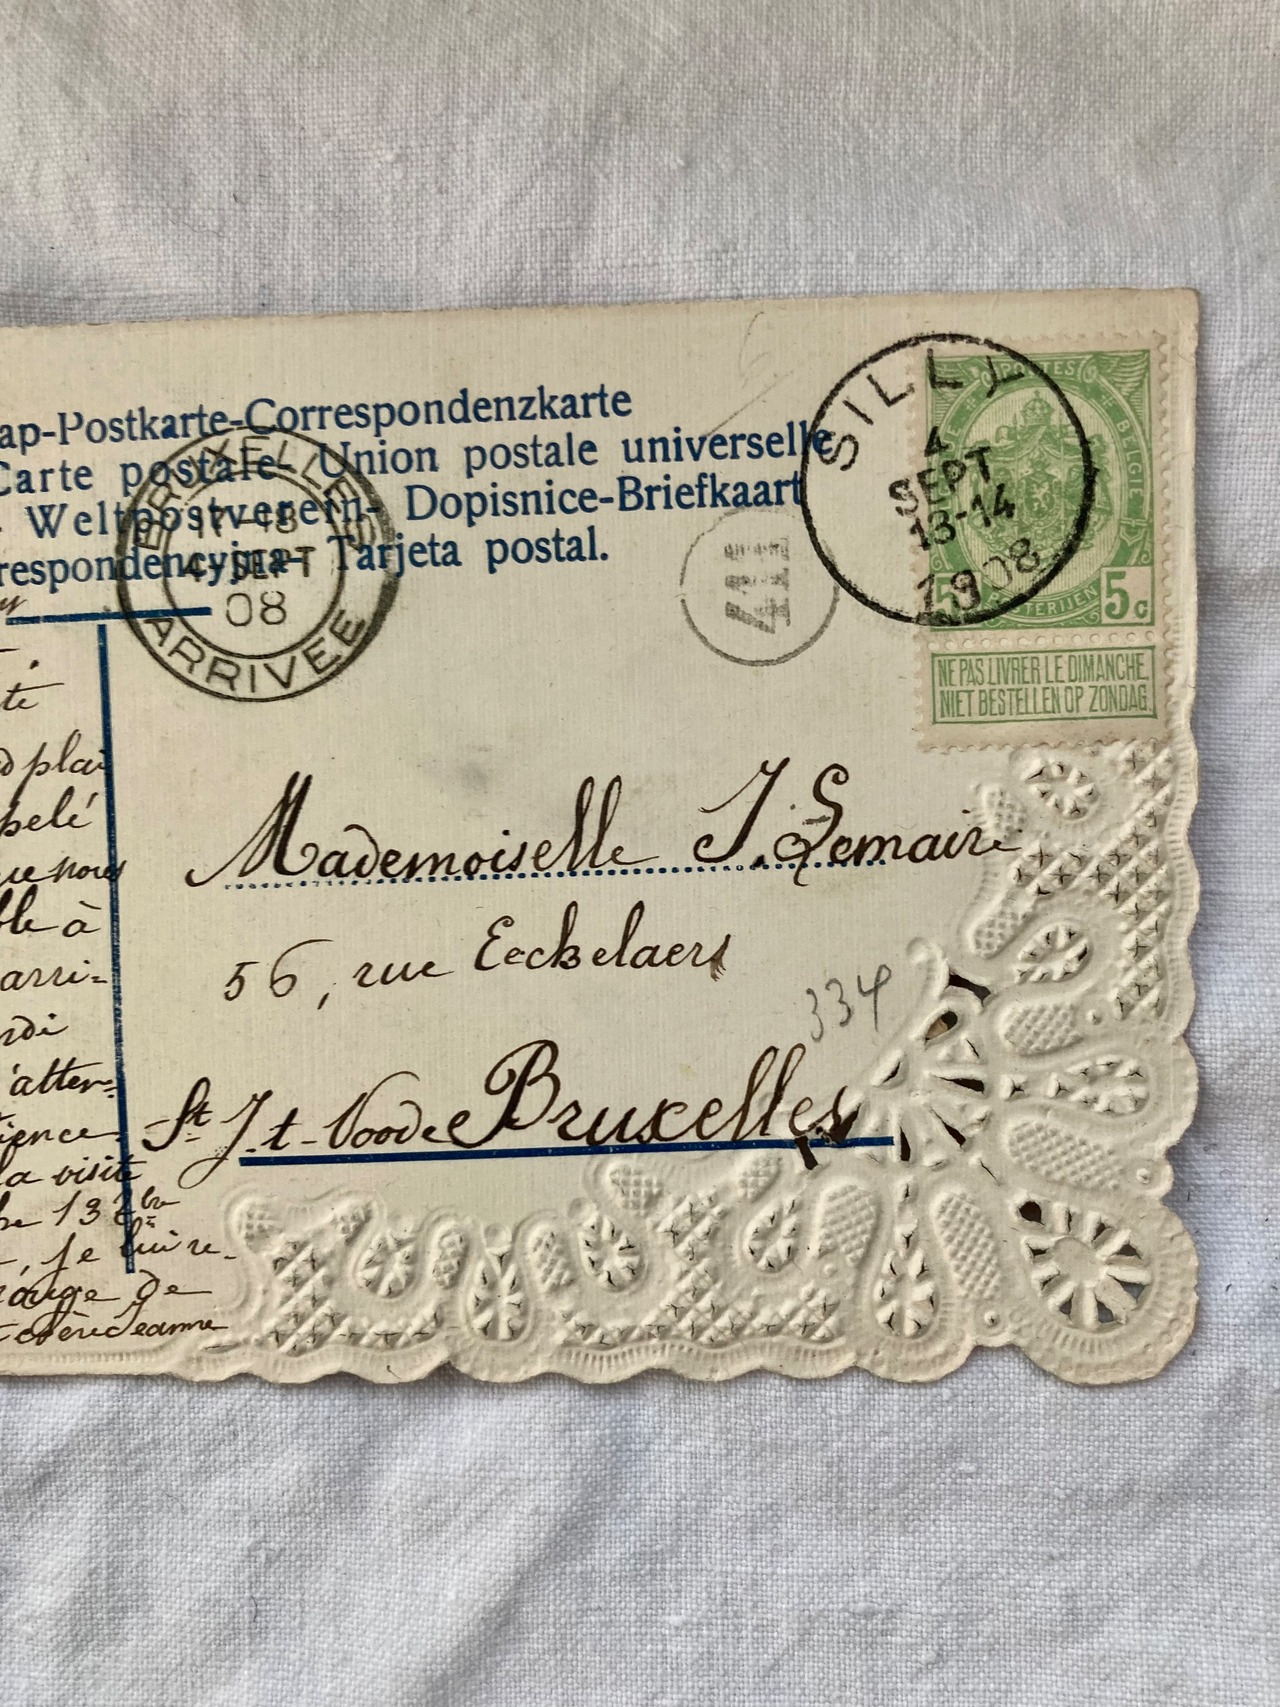 ap-Postkarte-Correspondenzkarte
Carte postale- Union postale universelle
- Weltpostverein- Dopisnice-Briefkaart
respondencyjna- Tarjeta postal.
BRUXELLES
17-18
4 SEPT
08
ARRIVEE
SILLY
4
SEPT
13-14
1908
POSTES
BELGIE
POSTERIJEN
5 5c
NE PAS LIVRER LE DIMANCHE.
NIET BESTELLEN OP ZONDAG.
Mademoiselle J. Lemaire
56, rue Eeckelaers
334
St J.t-Noode Bruxelles
te
d plai
pelé
ue nous
ble à
arri-
rdi
'atten-
ience.
la visite
13
, je lui re-
rouge de
Jeanne